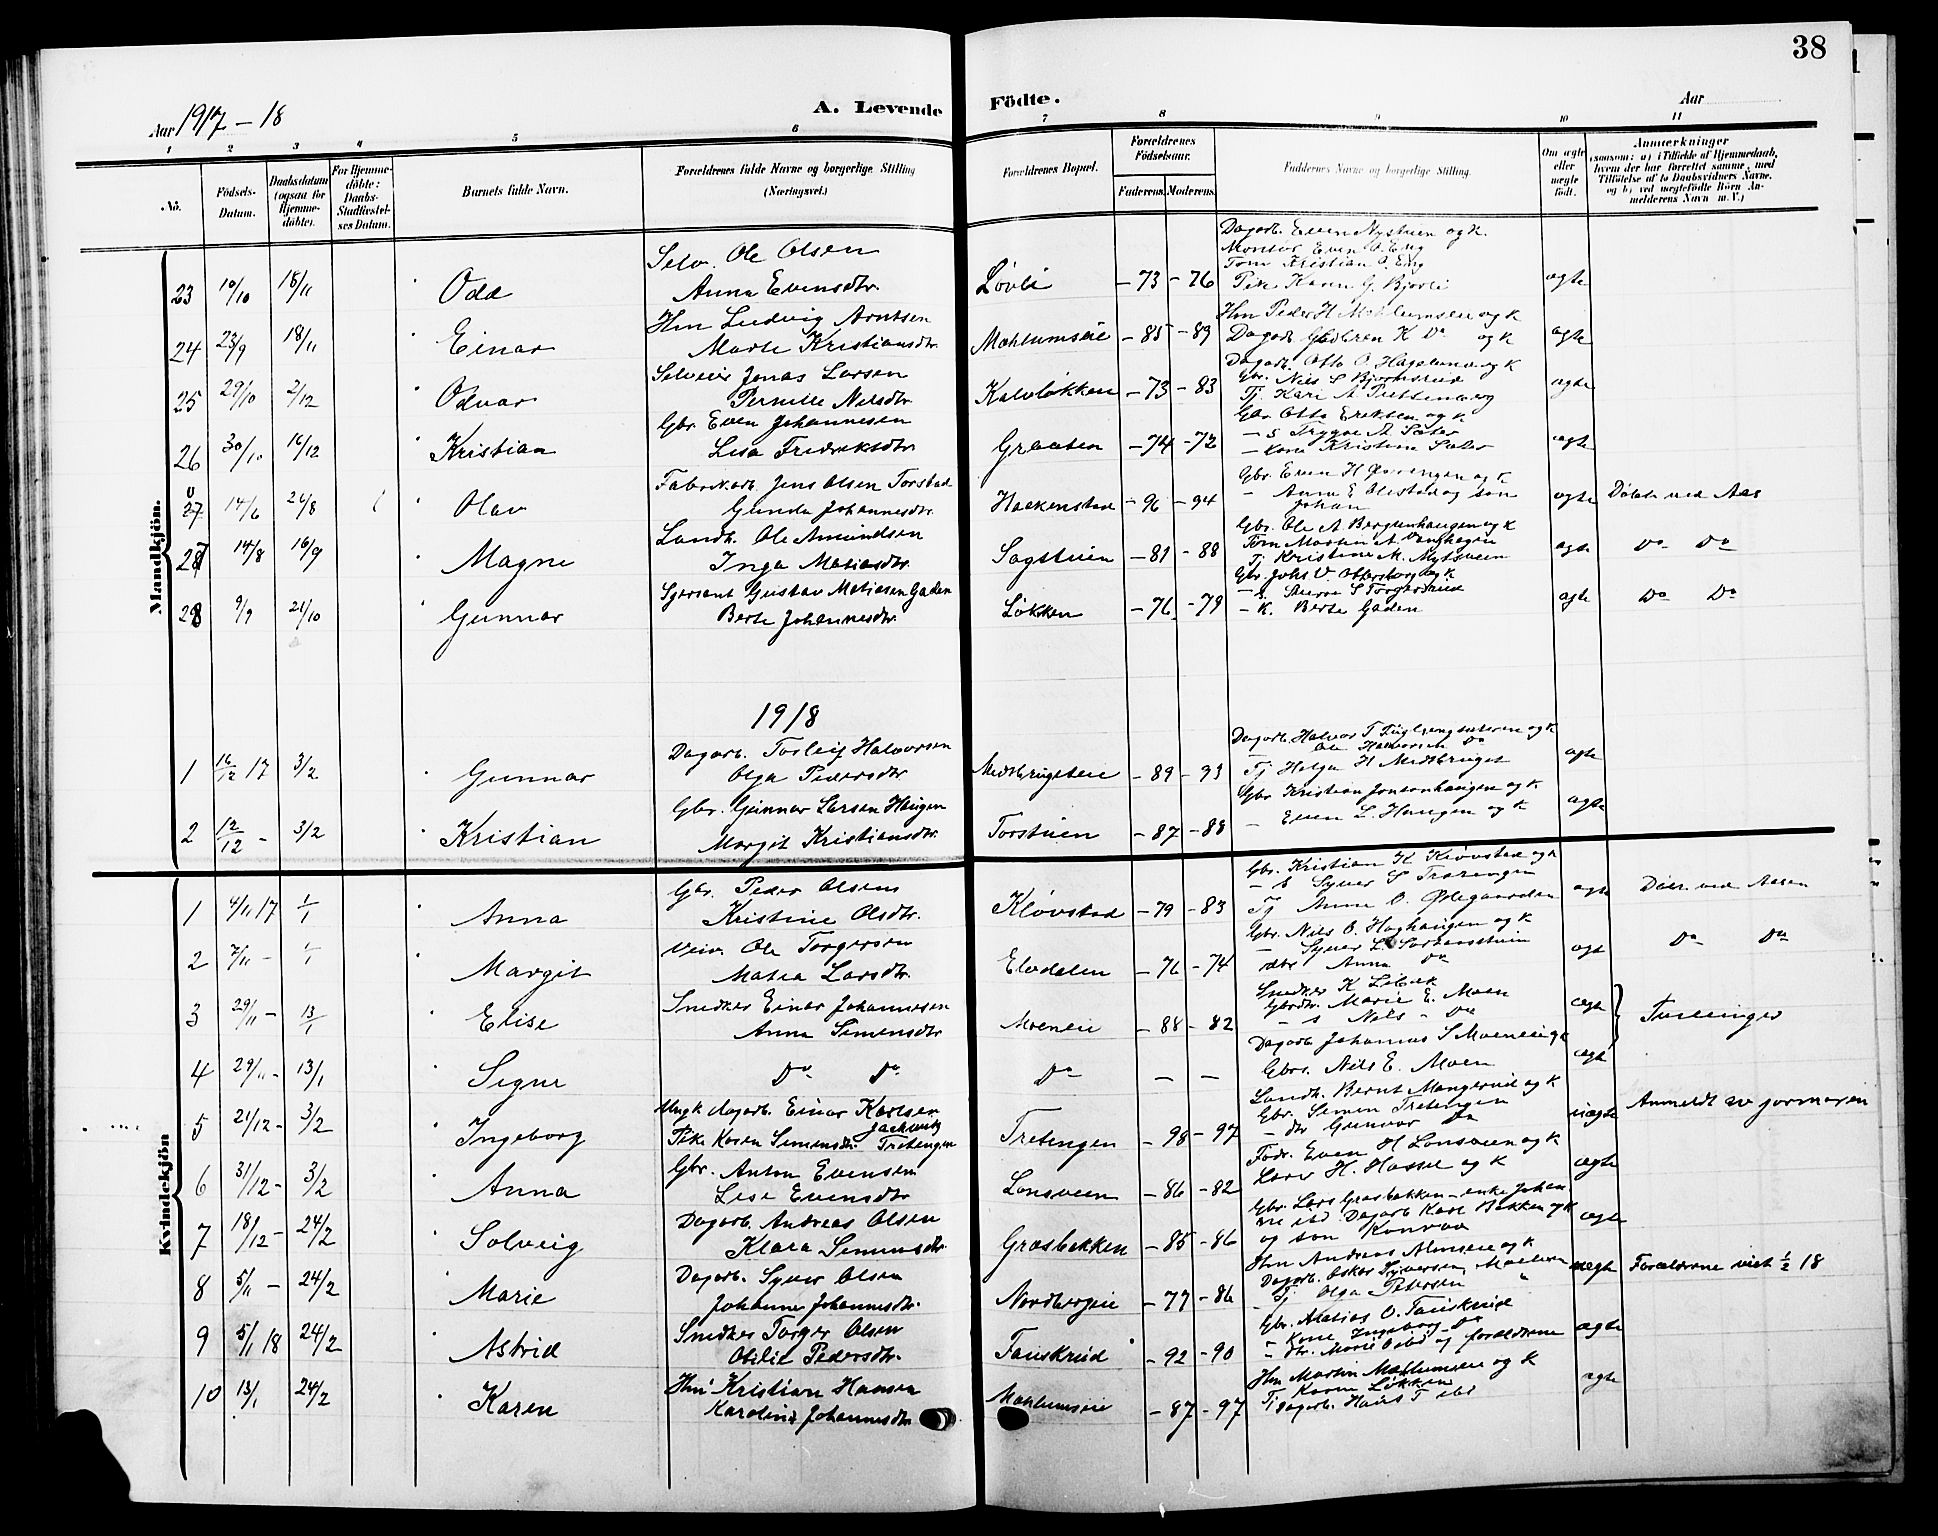 38
Aar 1917 - 18
A. Levende Födte.
Aar
1 2 3 4 5 6 7 8 9 10 11
No.
Födsels-Datum.
Daabsdatum (ogsaa for Hjemmedöbte).
For Hjemmedöbte: Daabs-Stadfæstelses Datum.
Barnets fulde Navn.
Forældrenes fulde Navne og borgerlige Stilling (Næringsvei.)
Forældrenes Bopæl.
Forældrenes Födselsaar.
Faderens. Moderens.
Faddernes Navne og borgerlige Stilling.
Om ægte eller uægte födt.
Anmærkninger
(saasom: a) i Tilfælde af Hjemmedaab, hvem der har forrettet samme, med Tilföielse af to Daabsvidners Navne, og b) ved uægtefödte Börn Anmelderens Navn m. V.)
Mandkjön.
Selv. Ole Olsen
Dagarb. Even Nystuen og k.
Montør Even O. Eng
Tøm Kristian O. Eng
23 10/10 18/11 Odd Anna Evensdtr. Løvli - 73 - 76 Pike Karen G. Bjørli ægte
Hm Ludvig Arntsen
Hm Peder H Mæhlumseie og k
24 23/9 18/11 Einar Marte Kristiansdtr. Mæhlumseie - 85 - 89 Dagarb. K Do og k ægte
Selveier Jonas Larsen
Dagarb. Otto O. og k
Gbr. Nils S Bjørnsrud
25 29/10 2/12 Odvar Pernille Nilsdtr Kalvløkken - 73 - 83 Tj. Kari A ægte
Gbr. Even Johannesen
Gbr Otto Eriksen og k
- s Trygve A. Sæter
26 30/10 16/12 Kristian Lisa Fredriksdtr. Graaten - 74 - 72 - kone Kristine Sæter ægte
Fabrikarb. Jens Olsen Torstad
Gbr. Even H og k
- Anne E. Olestad og søn
27 14/6 26/8 Olav Gunda Johannesdtr. Haakenstad - 96 - 94 Johan ægte Døbt ved Aas
Landh. Ole Amundsen
Gbr. Ole A Bergsenhaugen og k
Tøm Martin A
27 14/8 16/9 Magne Inga Matiasdtr. Sagstuen - 81 - 88 Tj Kristine M. Nytsveen ægte Do Do
Sersant Gustav Matiasen Gaden
Gbr. Johs V. og k
- s. S Torgersrud
28 9/9 21/10 Gunnar Berte Johannesdtr. Løkken - 76 - 79 - k. Berte Gaden ægte Do Do
1918
Dagarb. Torleif Halvorsen
Dagarb. Halvor T og k
- Ole Halvorsen Do
1 16/12 17 3/2 Gunnar Olga Pedersdtr Medbrugseie - 89 - 93 Tj Helga H Medbruget ægte
Gbr. Gunnar Larsen Haugen
Gbr Kristian Jonsonhaugen og k
2 12/12 - 3/2 Kristian Margit Kristiansdtr. Torstuen - 87 - 88 - Even L. Haugen og k ægte
Kvindekjön
Gbr. Peder Olsen
Gbr. Kristian K Kløvstad og k
- s Syver S Trætengen
1 4/11 17 1/1 Anna Kristine Olsdtr. Kløvstad - 79 - 83 Tj Anne O. Ødegaarden ægte Døbt ved Aasen
Veiv. Ole Torgersen
Gbr. Nils O. Haghaugen og k
- Syver L.
2 7/11 - 1/1 Margit Matea Larsdtr. Elvedalen - 76 - 74 dtr Anna Do ægt Do Do
Snedker Einar Johannesen
Snedker K
Gbrdtr. Marie E. Moen
3 29/11 - 13/1 Elise Anna Simensdtr Moeneie - 88 - 82 - s Nils - Do ægte Tvillinger
Dagarb Johannes S Moeneie og k
4 29/11 - 13/1 Signe Do Do Do - - Gbrs. Nils E. Moen ægte
Ungk dagarb. Einar Karlsen
Landh. Bernt Mangerud og k
Gbr. Simen Tretengen
5 21/12 - 3/2 Ingeborg Pike Karen Simensdtr. Tretengen Tretengen - 98 - 97 - dtr Gunvor Do uægte Anmeldt av jormoren
Gbr. Anton Evensen
Fødr. Even H Lonsveen og k
6 31/12 - 3/2 Anna Lise Evensdtr Lonsveen - 86 - 82 Lars H. og k ægte
Dagarb. Andreas Olsen
Gbr. Lars Græsbakken - enke Johanne ibd. Dagarb Karl Bakken og k
7 18/12 - 24/2 Solveig Klara Simensdtr. Græsbakken - 85 - 86 og søn Konrad ægte
Dagarb. Syver Olsen
Hm Andreas Almseie og k
Dagarb. Oskar Syversen,
8 5/11 - 24/2 Marie Johanne Johannesdtr. Nordbergeie - 77 - 86 - Tj Olga Petersen uægte Forældrene viet 1/2 18
Snedker Torger Olsen
Gbr. Matias O. Fauskrud
- Kone Ingeborg Do
9 5/1 18 24/2 Astrid Otilie Pedersdtr. Fauskrud - 92 - 90 - dtr. Marie ibd og forældrene ægte
Hm Kristian Hansen
Hm Martin Mæhlumseie og k
Tj Karen Løkken
10 13/1 24/2 Karen Karoline Johannesdtr Mæhlumseie - 87 - 97 Dagarb. Hans T ibd ægte